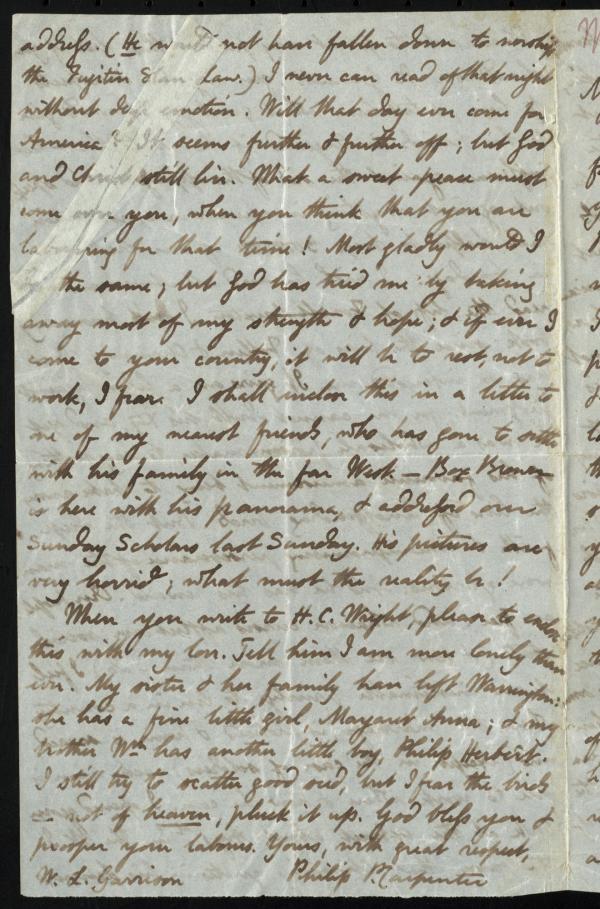 address. (He would not have fallen down to worship
the Fugitive Slave Law.) I never can read of that night
without deep emotion. Will that day ever come for
America? It seems further & further off; but God
and Christ still live. What a sweet peace must
come over you, when you think that you are
labouring for that time! Most gladly would I
the same; but God has tried me by taking
away most of my strength & hope; & if ever I
come to your country, it will be to rest, not to
work, I fear. I shall inclose this in a letter to
one of my nearest friends, who has gone to settle
with his family in the far West. — Box Brown
is here with his panorama, & addressed our
Sunday Scholars last Sunday. His pictures are
very horrid; what must the reality be!
When you write to H. C. Wright, please to enclose
this, with my love. Tell him I am more lonely than
ever. My sister & her family have left Warrington:
she has a fine little girl, Margaret Anna; & my
brother Wm has another little boy, Philip Herbert.
I still try to scatter good seed, but I fear the birds
— not of heaven, pluck it up. God bless you &
prosper your labours. Yours, with great respect,
W. L. Garrison Philip P. Carpenter